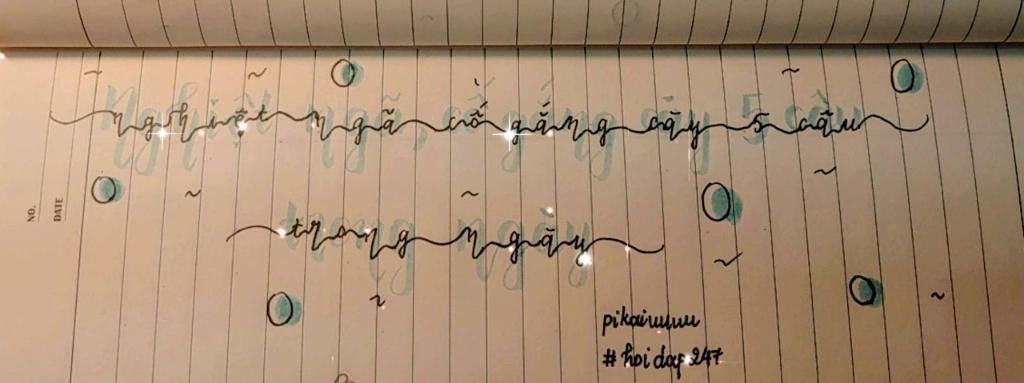 nghiệt ngã cố gắng cày 5 câu
trong ngày
NO.
DATE
pikaiuuuu
# hoidap247